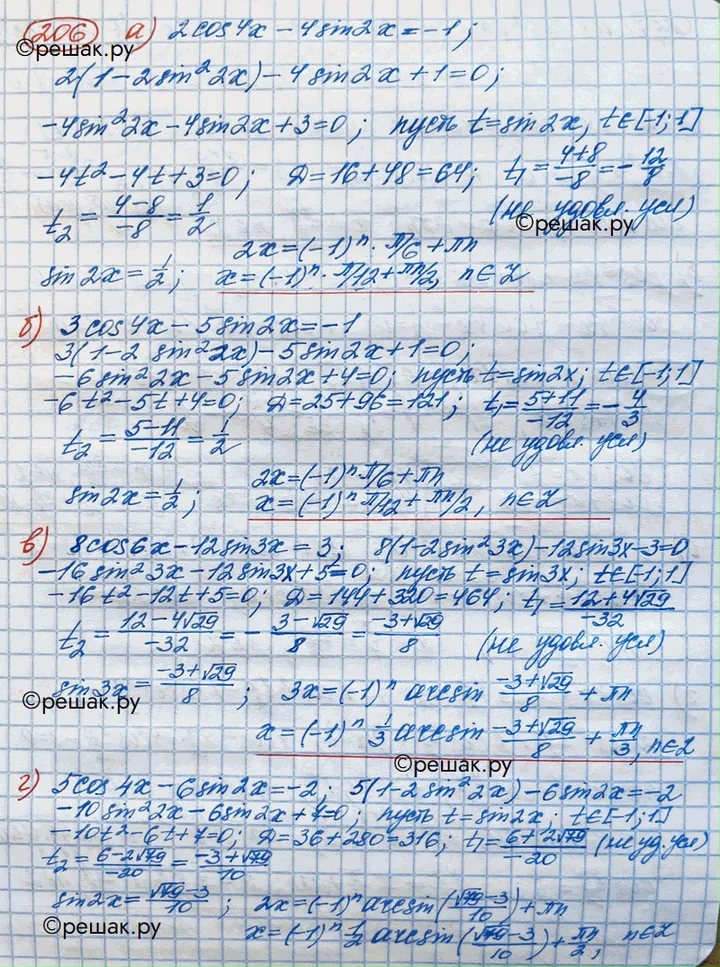 206 а) 2cos4x – 4sin2x = –1;
©решак.ру
2(1–2sin²2x) – 4sin2x + 1 = 0;
–4sin²2x – 4sin2x + 3 = 0; пусть t = sin2x, t∈[-1;1]
–4t² – 4t + 3 = 0; D = 16 + 48 = 64; t₁ = (4+8)/(–8) = –12/8
t₂ = (4–8)/(–8) = 1/2 (не удовл. усл)
©решак.ру ©решак.ру
2x = (–1)ⁿ · π/6 + πn
sin2x = 1/2; x = (–1)ⁿ · π/12 + πn/2, n∈Z
б) 3cos4x – 5sin2x = –1
3(1–2 sin²2x) – 5sin2x + 1 = 0;
–6sin²2x – 5sin2x + 4 = 0; пусть t = sin2x; t∈[-1;1]
–6t² – 5t + 4 = 0; D = 25 + 96 = 121; t₁ = (5+11)/(–12) = –4/3
t₂ = (5–11)/(–12) = 1/2 (не удовл. усл)
2x = (–1)ⁿ π/6 + πn
sin2x = 1/2; x = (–1)ⁿ π/12 + πn/2, n∈Z
в) 8cos6x – 12sin3x = 3; 8(1–2sin²3x) – 12sin3x – 3 = 0
–16sin²3x – 12sin3x + 5 = 0; пусть t = sin3x; t∈[-1;1]
–16t² – 12t + 5 = 0; D = 144 + 320 = 464; t₁ = (12+4√29)/(–32)
t₂ = (12–4√29)/(–32) = –(3–√29)/8 = (–3+√29)/8 (не удовл. усл)
sin3x = (–3+√29)/8; 3x = (–1)ⁿ arcsin (–3+√29)/8 + πn
©решак.ру
x = (–1)ⁿ 1/3 arcsin (–3+√29)/8 + πn/3, n∈Z
©решак.ру
г) 5cos4x – 6sin2x = –2; 5(1–2sin²2x) – 6sin2x = –2
–10sin²2x – 6sin2x + 7 = 0; пусть t = sin2x; t∈[-1;1]
–10t² – 6t + 7 = 0; D = 36 + 280 = 316; t₁ = (6+2√79)/(–20) (не уд. усл)
t₂ = (6–2√79)/(–20) = (–3+√79)/10
sin2x = (√79–3)/10; 2x = (–1)ⁿ arcsin((√79–3)/10) + πn
©решак.ру
x = (–1)ⁿ 1/2 arcsin((√79–3)/10) + πn/2, n∈Z